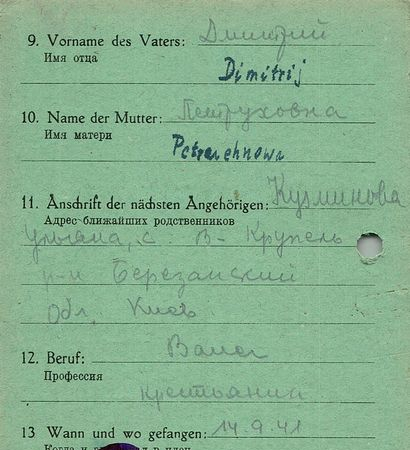 9. Vorname des Vaters: Дмитрий
Имя отца
Dimitrij
10. Name der Mutter: Петруховна
Имя матери
Petruchnowa
11. Anschrift der nächsten Angehörigen: Кузминова
Адрес ближайших родственников
Ульяна, с. В-Крупель
р-н Березанский
Обл. Киев
12. Beruf: Bauer
Профессия
крестьянин
13 Wann und wo gefangen: 14.9.41